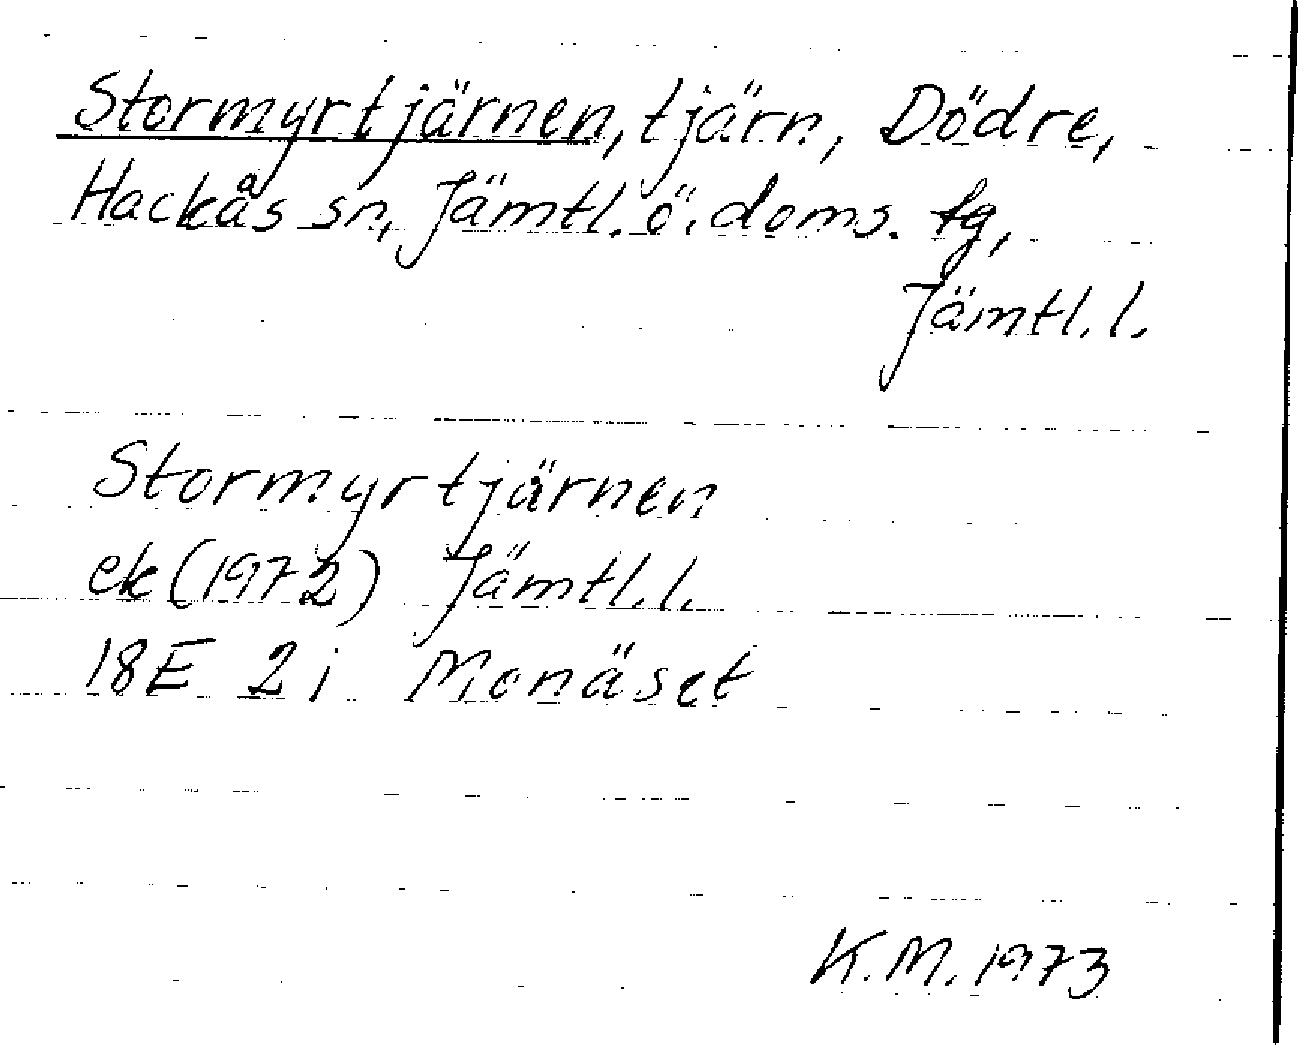 Stormyrtjärnen, tjärn, Dödre,
Hackås sn, Jämtl. ö. doms. tg,
Jämtl. l.
Stormyrtjärnen
ek (1972) Jämtl. l.
18E 2i Monäset
K.M. 1973